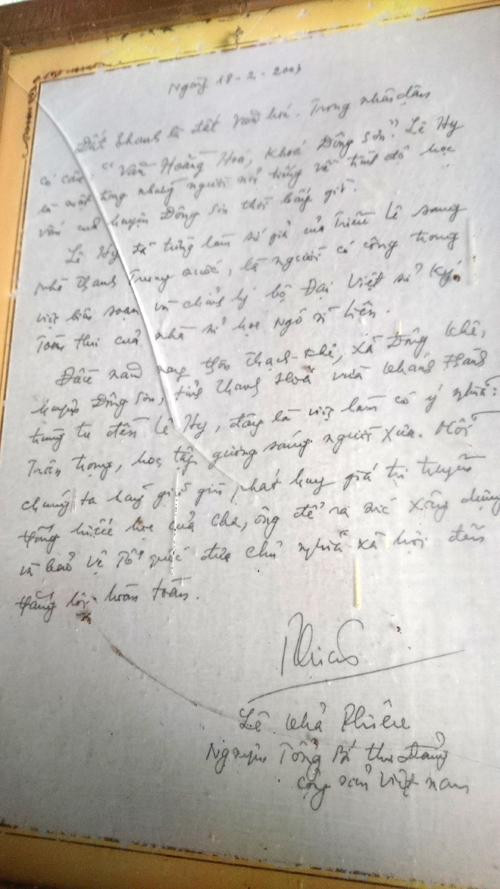 Ngày 18-2-2003
Đất Thanh là đất văn hoá. Trong nhân dân
có câu: "Văn Hoằng Hoá, Khoá Đông Sơn". Lê Hy
là một trong những người nổi tiếng về trình độ học
vấn của huyện Đông Sơn thời bấy giờ.
Lê Hy đã từng làm sứ giả của triều Lê sang
nhà Thanh Trung Quốc, là người có công trong
việc biên soạn và chỉnh lý bộ Đại Việt sử Ký
Toàn thư của nhà sử học Ngô Sĩ Liên.
Đầu năm nay thôn Thạch-Khê, xã Đông Khê,
huyện Đông Sơn, tỉnh Thanh Hoá vừa khánh thành
trùng tu đền Lê Hy, đây là việc làm có ý nghĩa:
Trân trọng, học tập gương sáng người xưa. Mỗi
chúng ta hãy giữ gìn, phát huy giá trị truyền
thống hiếu học của cha, ông để ra sức xây dựng
và bảo vệ Tổ quốc đưa chủ nghĩa xã hội đến
thắng lợi hoàn toàn.
Lê Khả Phiêu
Nguyên Tổng Bí thư Đảng
Cộng sản Việt nam